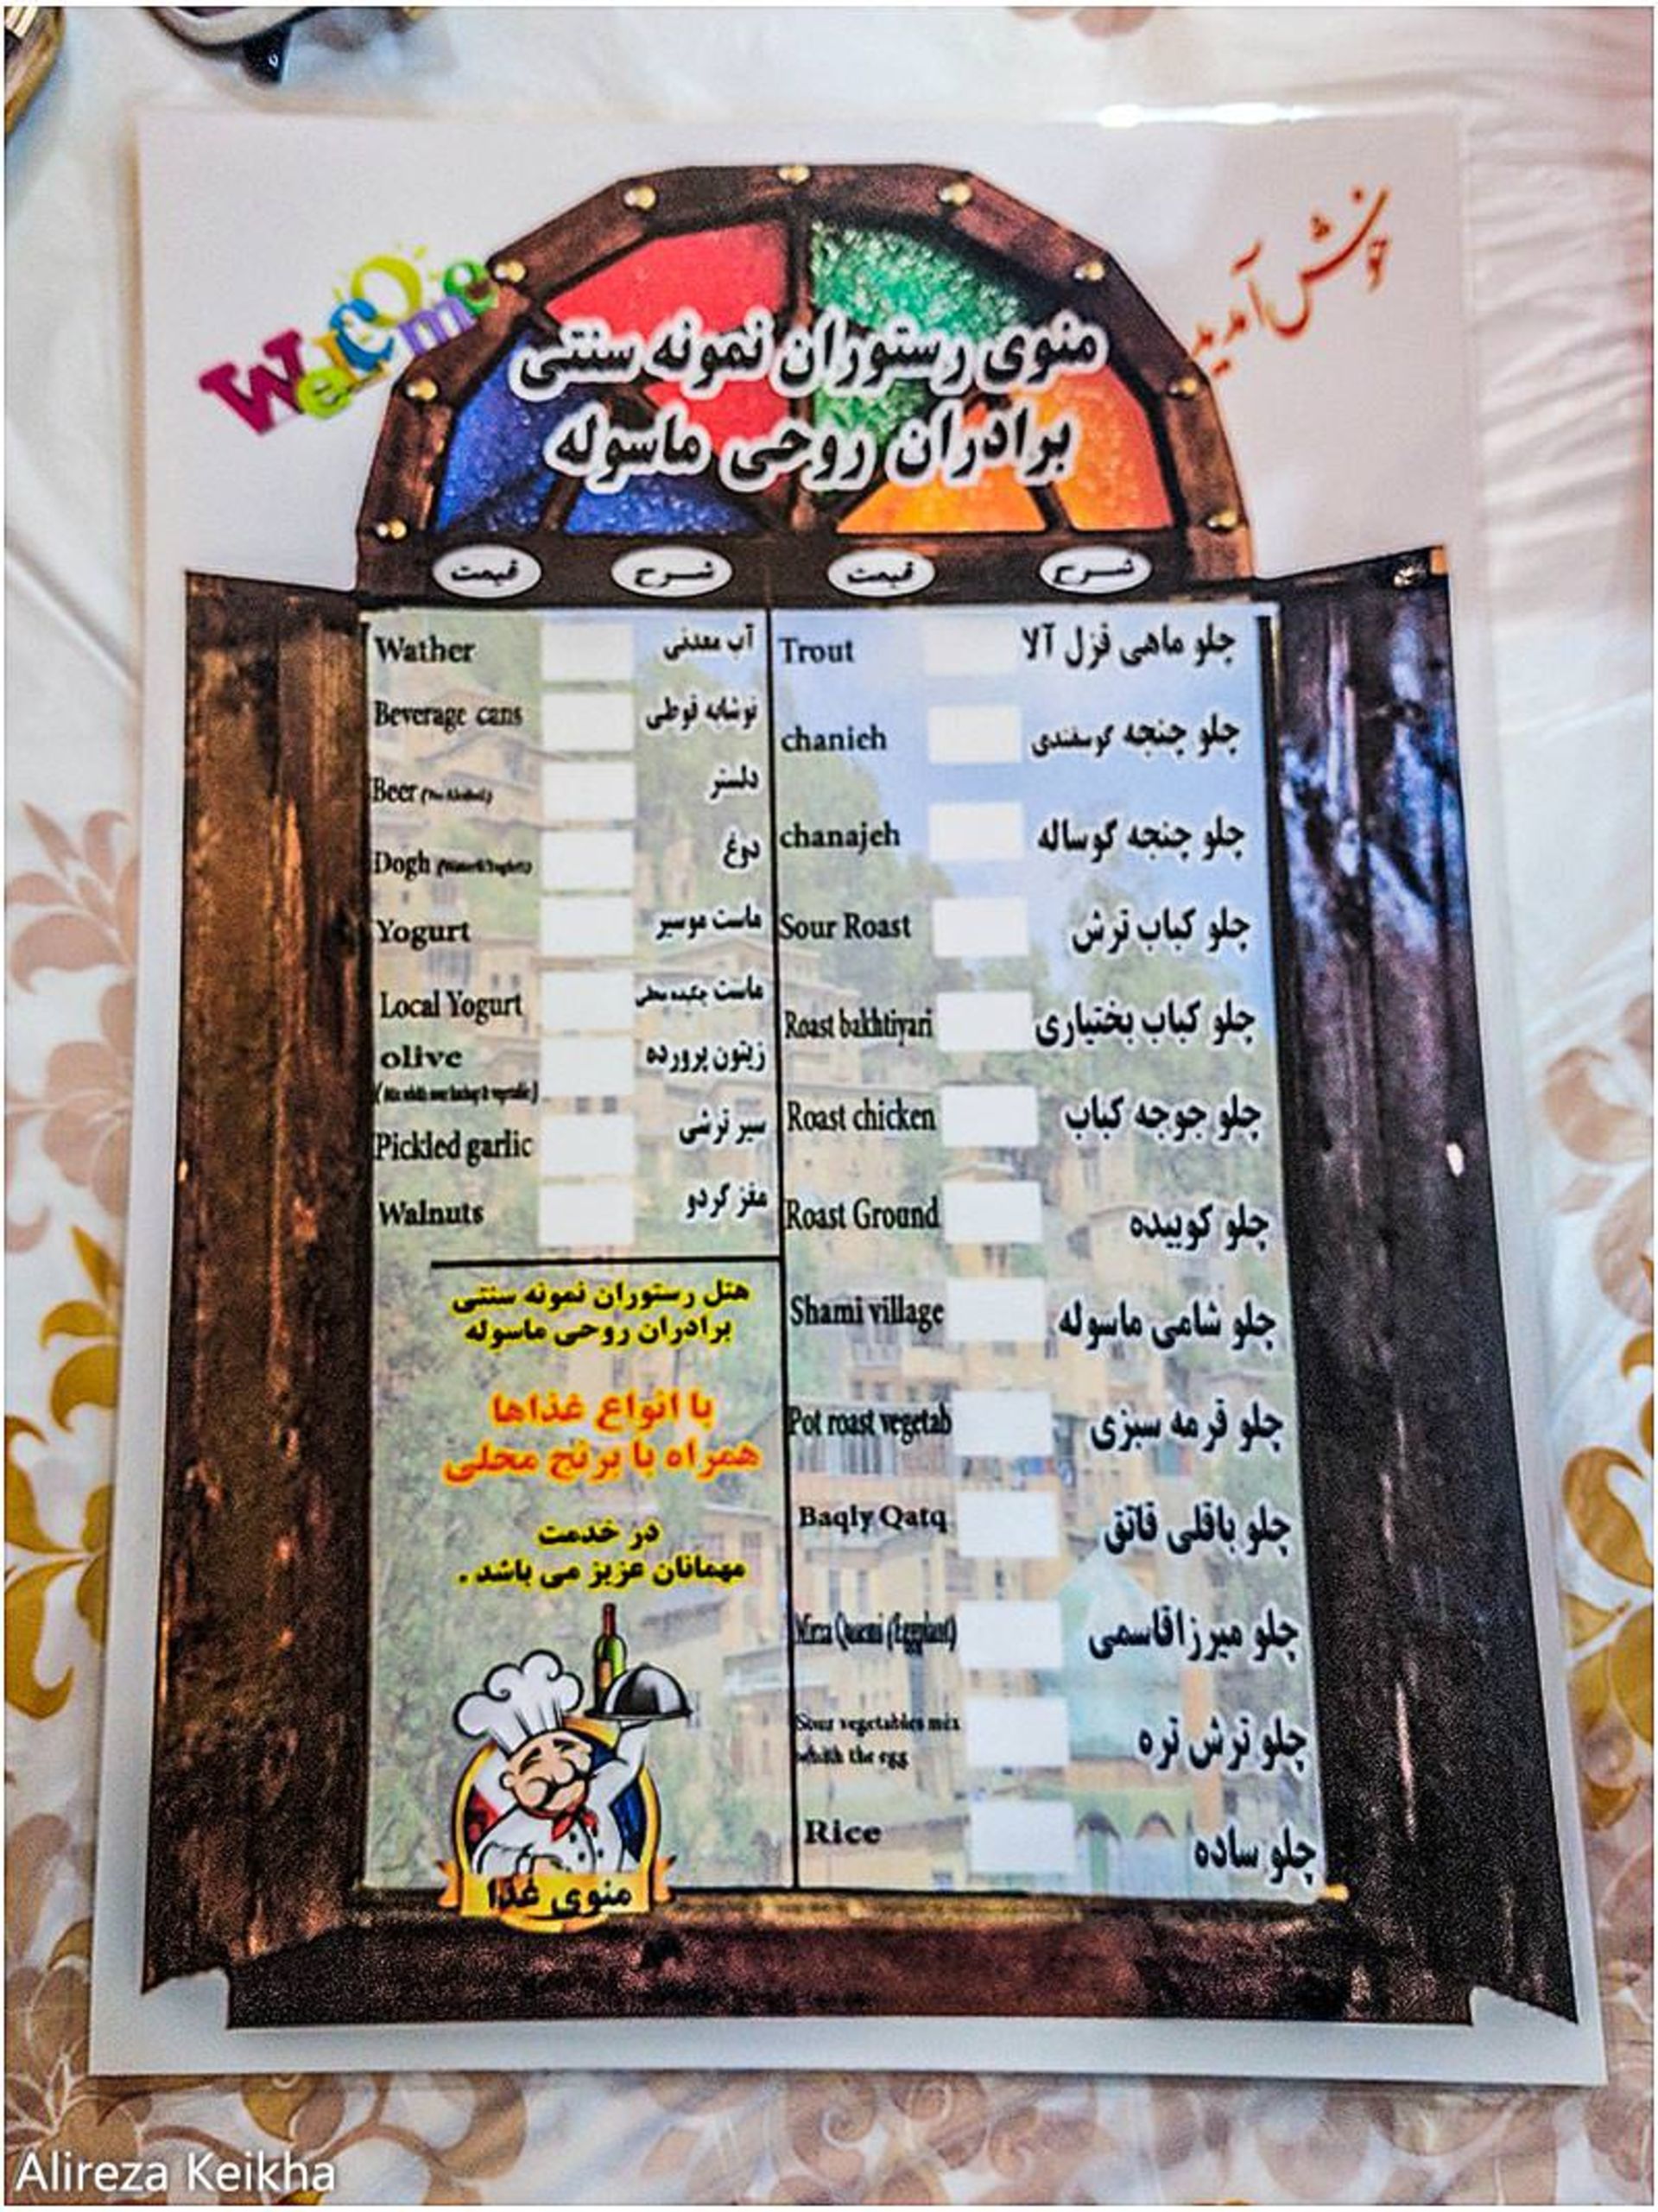 Welcome
خوش آمدید
منوی رستوران نمونه سنتی
برادران روحی ماسوله
شرح
قیمت
شرح
قیمت
چلو ماهی قزل آلا
Trout
چلو چنجه گوسفندی
chanieh
چلو چنجه گوساله
chanajeh
چلو کباب ترش
Sour Roast
چلو کباب بختیاری
Roast bakhtiyari
چلو جوجه کباب
Roast chicken
چلو کوبیده
Roast Ground
چلو شامی ماسوله
Shami village
چلو قرمه سبزی
Pot roast vegetab
چلو باقلی قاتق
Baqly Qatq
چلو میرزاقاسمی
Mirza Qasemi (Eggplant)
چلو ترش تره
Sour vegetables mix
whith the egg
چلو ساده
Rice
آب معدنی
Wather
نوشابه قوطی
Beverage cans
دلستر
Beer (No Alcohol)
دوغ
Dogh
ماست موسیر
Yogurt
ماست چکیده محلی
Local Yogurt
زیتون پرورده
olive
سیر ترشی
Pickled garlic
مغز گردو
Walnuts
هتل رستوران نمونه سنتی
برادران روحی ماسوله
با انواع غذاها
همراه با برنج محلی
در خدمت
مهمانان عزیز می باشد .
منوی غذا
Alireza Keikha